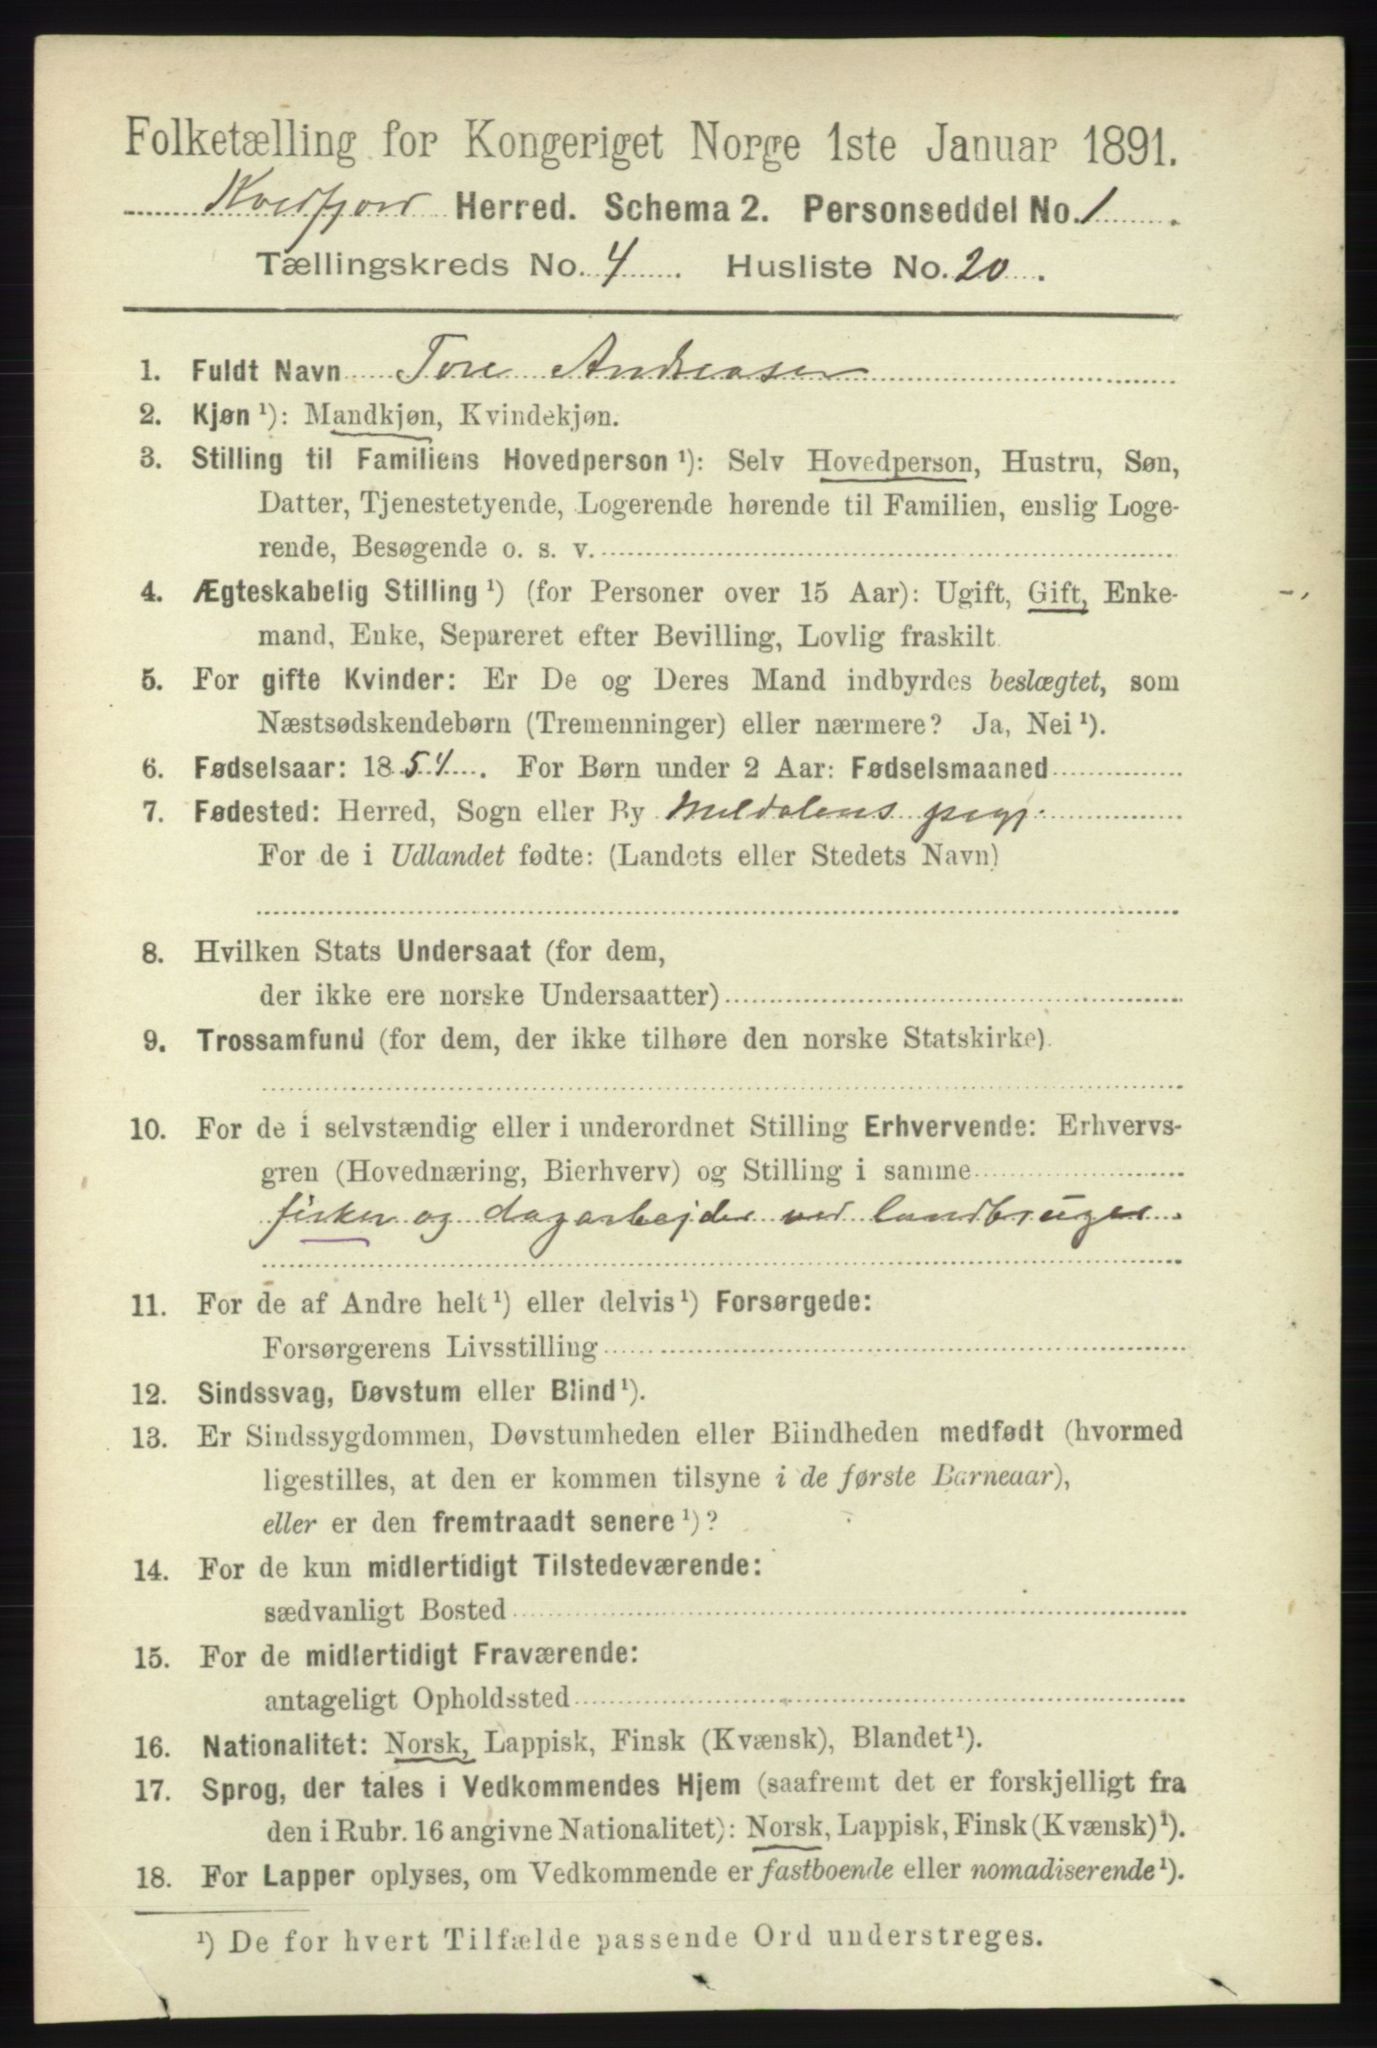 Folketælling for Kongeriget Norge 1ste Januar 1891.
Kvedfjord Herred. Schema 2. Personseddel No. 1
Tællingskreds No. 4. Husliste No. 20.
1. Fuldt Navn Tore Andreasen
2. Kjøn¹): Mandkjøn, Kvindekjøn.
3. Stilling til Familiens Hovedperson¹): Selv Hovedperson, Hustru, Søn,
Datter, Tjenestetyende, Logerende hørende til Familien, enslig Loge-
rende, Besøgende o. s. v.
4. Ægteskabelig Stilling¹) (for Personer over 15 Aar): Ugift, Gift, Enke-
mand, Enke, Separeret efter Bevilling, Lovlig fraskilt
5. For gifte Kvinder: Er De og Deres Mand indbyrdes beslægtet, som
Næstsødskendebørn (Tremenninger) eller nærmere? Ja, Nei¹).
6. Fødselsaar: 1854. For Børn under 2 Aar: Fødselsmaaned
7. Fødested: Herred, Sogn eller By Meldalens prgj.
For de i Udlandet fødte: (Landets eller Stedets Navn)
8. Hvilken Stats Undersaat (for dem,
der ikke ere norske Undersaatter)
9. Trossamfund (for dem, der ikke tilhøre den norske Statskirke)
10. For de i selvstændig eller i underordnet Stilling Erhvervende: Erhvervs-
gren (Hovednæring, Bierhverv) og Stilling i samme
fisker og dagarbejder ved landbruget.
11. For de af Andre helt¹) eller delvis¹) Forsørgede:
Forsørgerens Livsstilling
12. Sindssvag, Døvstum eller Blind¹).
13. Er Sindssygdommen, Døvstumheden eller Blindheden medfødt (hvormed
ligestilles, at den er kommen tilsyne i de første Barneaar),
eller er den fremtraadt senere¹)?
14. For de kun midlertidigt Tilstedeværende:
sædvanligt Bosted
15. For de midlertidigt Fraværende:
antageligt Opholdssted
16. Nationalitet: Norsk, Lappisk, Finsk (Kvænsk), Blandet¹).
17. Sprog, der tales i Vedkommendes Hjem (saafremt det er forskjelligt fra
den i Rubr. 16 angivne Nationalitet): Norsk, Lappisk, Finsk (Kvænsk)¹).
18. For Lapper oplyses, om Vedkommende er fastboende eller nomadiserende¹).
¹) De for hvert Tilfælde passende Ord understreges.